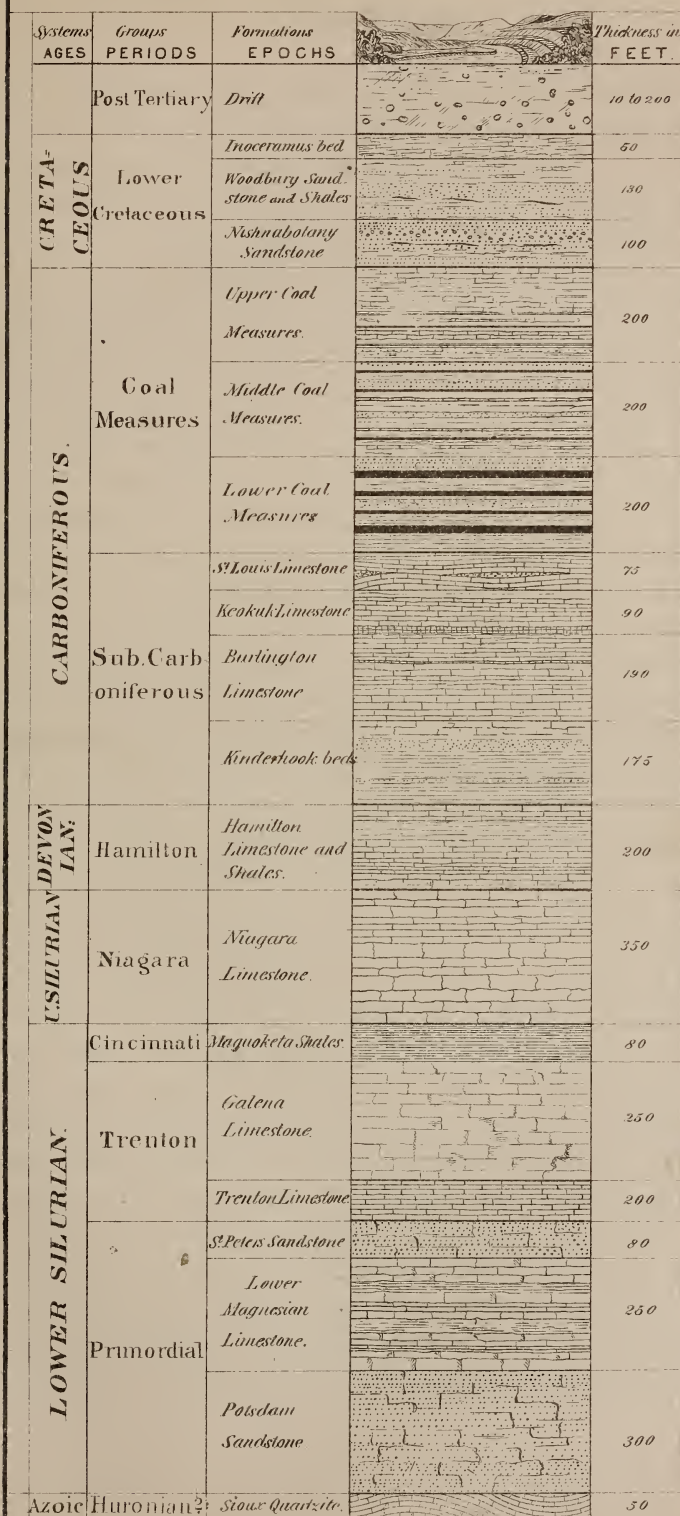 Systems Groups Formations Thickness in
AGES PERIODS EPOCHS FEET.
Post Tertiary Drift 10 to 200
CRETA-
CEOUS
Lower
Cretaceous
Inoceramus bed 50
Woodbury Sand-
stone and Shales 130
Nishnabotany
Sandstone 100
CARBONIFEROUS.
Coal
Measures
Upper Coal
Measures. 200
Middle Coal
Measures. 200
Lower Coal
Measures 200
Sub.Carb
oniferous
St. Louis Limestone 75
Keokuk Limestone 90
Burlington
Limestone 190
Kinderhook beds 175
DEVON
IAN.
Hamilton
Hamilton
Limestone and
Shales. 200
U.SILURIAN
Niagara
Niagara
Limestone. 350
LOWER SILURIAN.
Cincinnati Maquoketa Shales. 80
Trenton
Galena
Limestone. 250
Trenton Limestone. 200
Primordial
St. Peters Sandstone 80
Lower
Magnesian
Limestone. 250
Potsdam
Sandstone 300
Azoic Huronian? Sioux Quartzite. 50